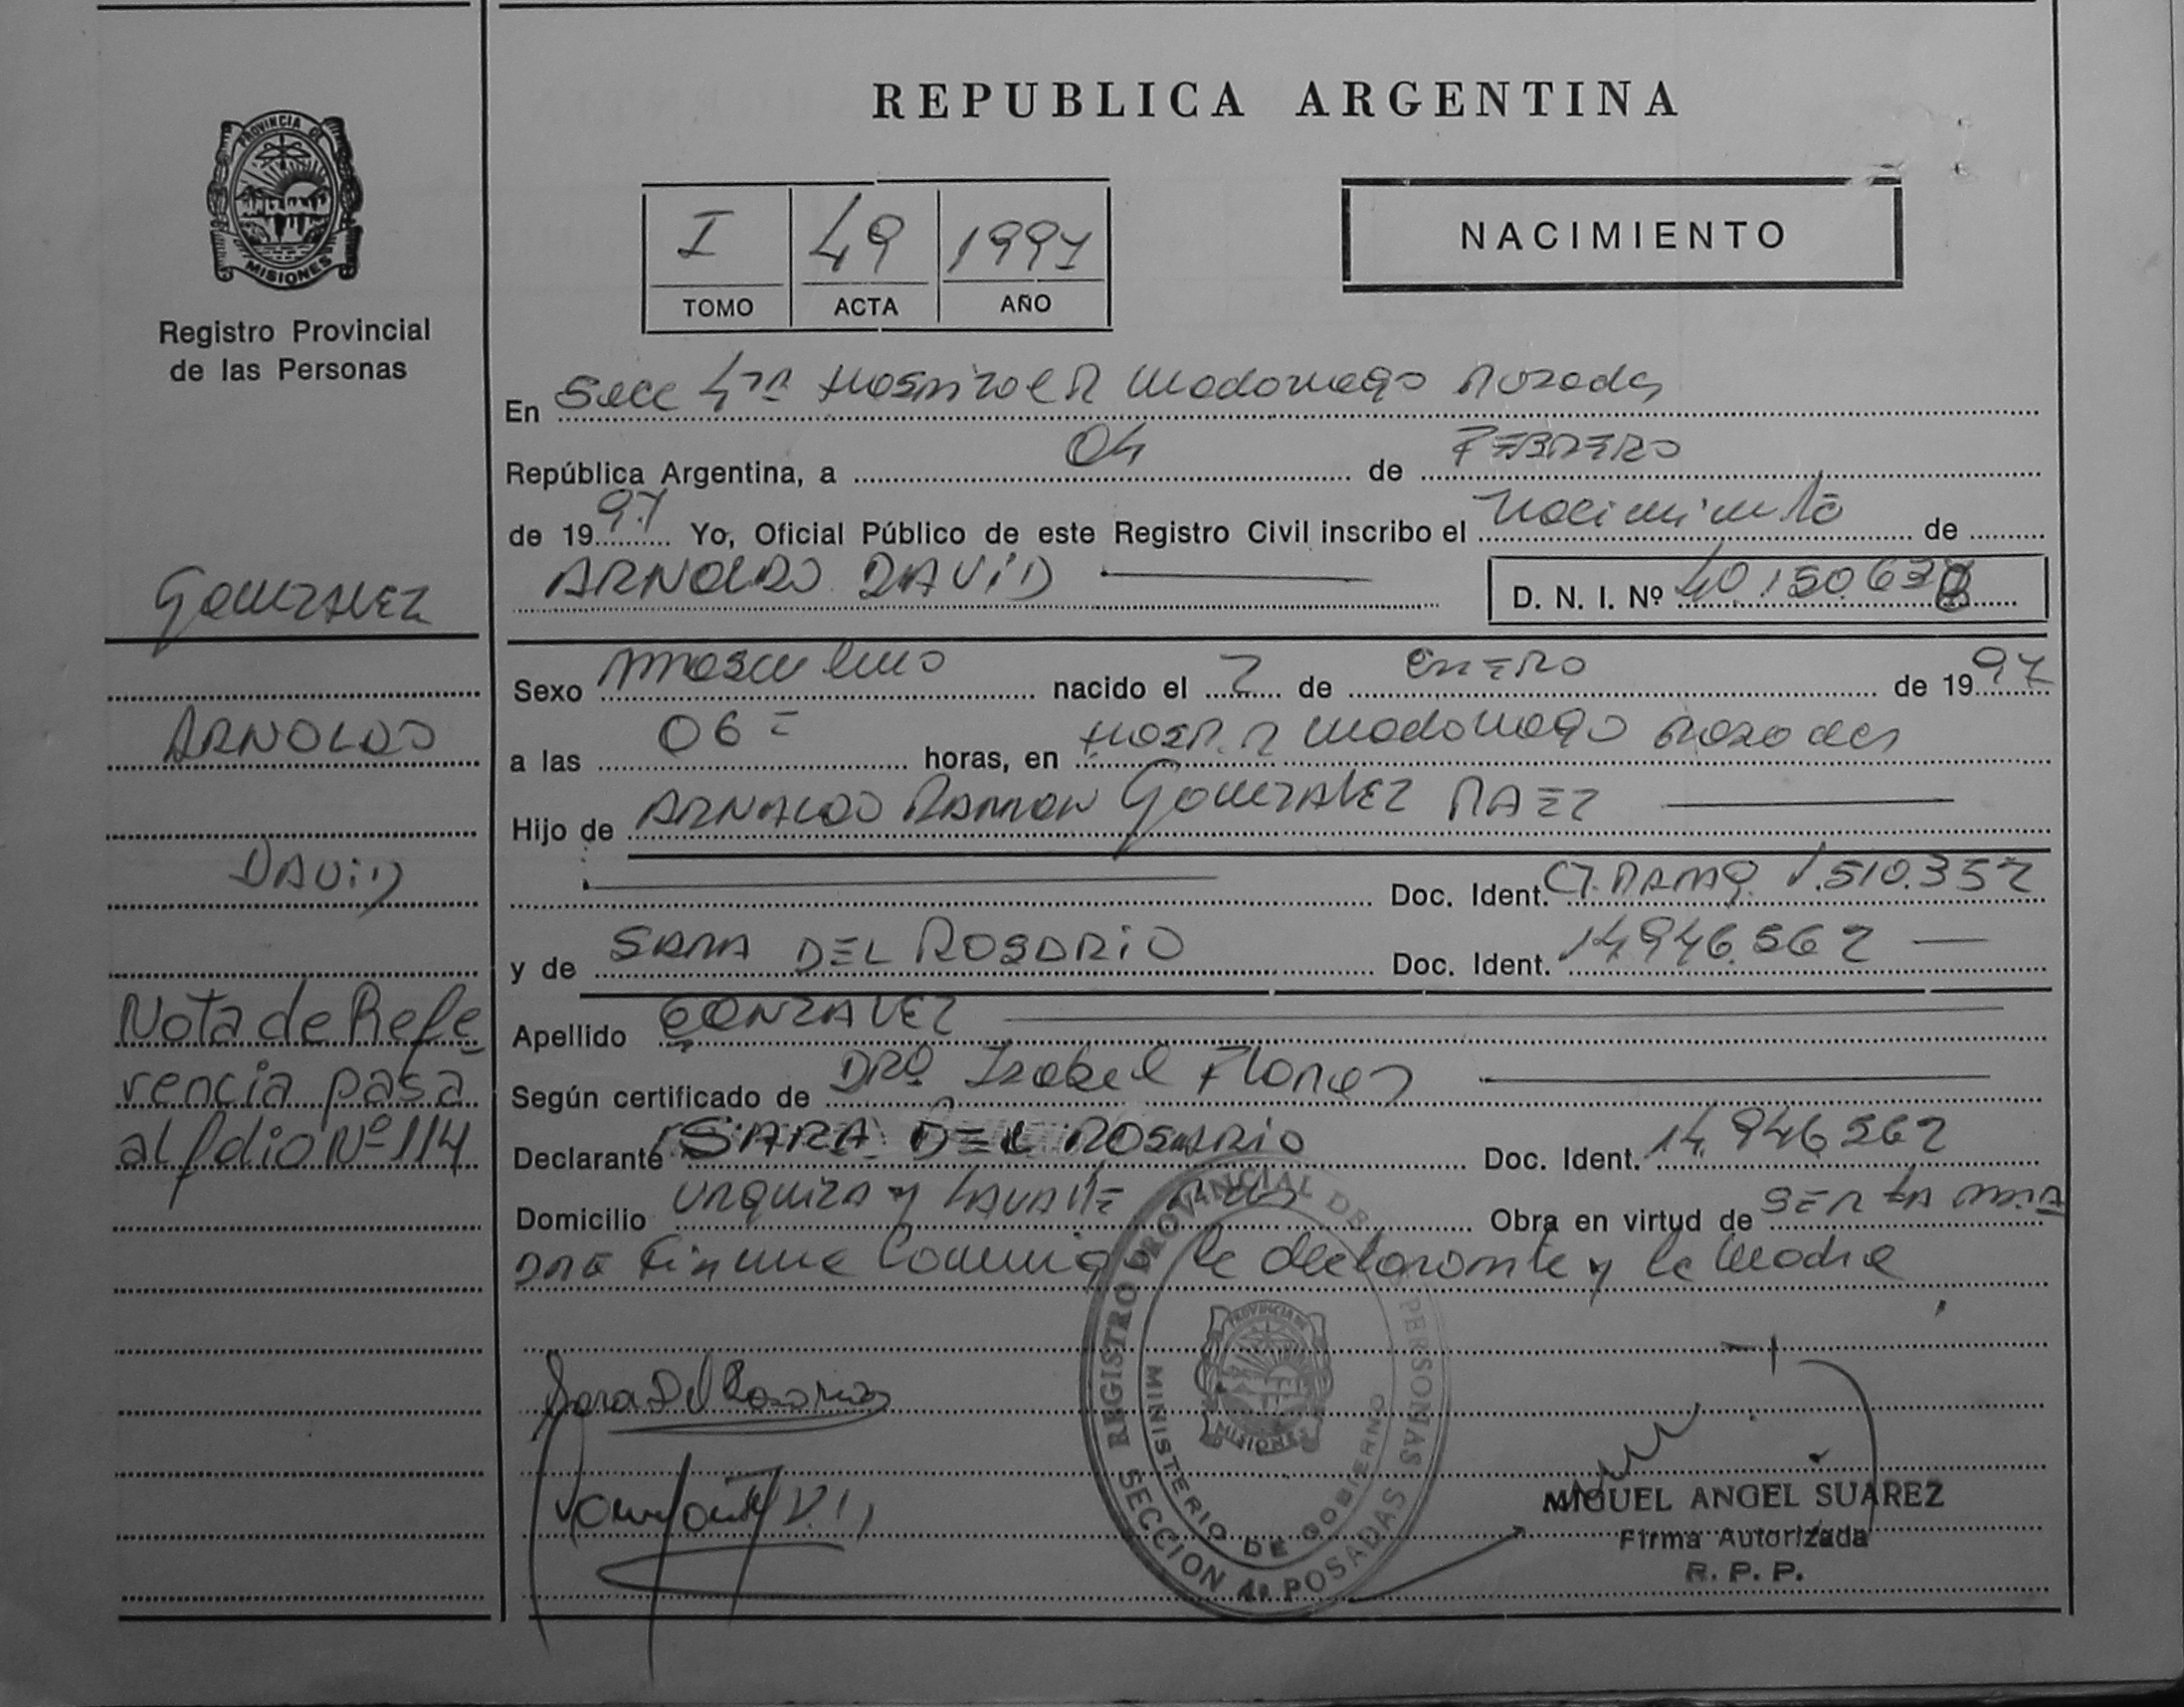 PROVINCIA DE
MISIONES
Registro Provincial
de las Personas
GONZALEZ
ARNOLDO
DAVID
Nota de Refe-
rencia pasa
al folio Nº 114
REPUBLICA ARGENTINA
NACIMIENTO
I 49 1997
TOMO ACTA AÑO
En Secc 4ta Hospital R Madariaga Posadas
República Argentina, a 04 de FEBRERO
de 1997 Yo, Oficial Público de este Registro Civil inscribo el nacimiento de
ARNOLDO DAVID D. N. I. Nº
Sexo masculino nacido el 7 de ENERO de 1997
a las 06 horas, en Hosp. R Madariaga Posadas
Hijo de ARNALDO RAMON GONZALEZ PAEZ
Doc. Ident. CI. PARAG. 1.510.357
y de SARA DEL ROSARIO Doc. Ident. 14.946.562
Apellido GONZALEZ
Según certificado de DRA Isabel Flores
Declarante SARA DEL ROSARIO Doc. Ident. 14.946.562
Domicilio URQUIZA y LAVALLE Obra en virtud de SER LA
firma conmigo la declarante y la madre
Sara Del Rosario
REGISTRO PROVINCIAL DE PERSONAS
MINISTERIO DE GOBIERNO
PROVINCIA DE
MISIONES
SECCION 4a. POSADAS
MIGUEL ANGEL SUAREZ
Firma Autorizada
R. P. P.